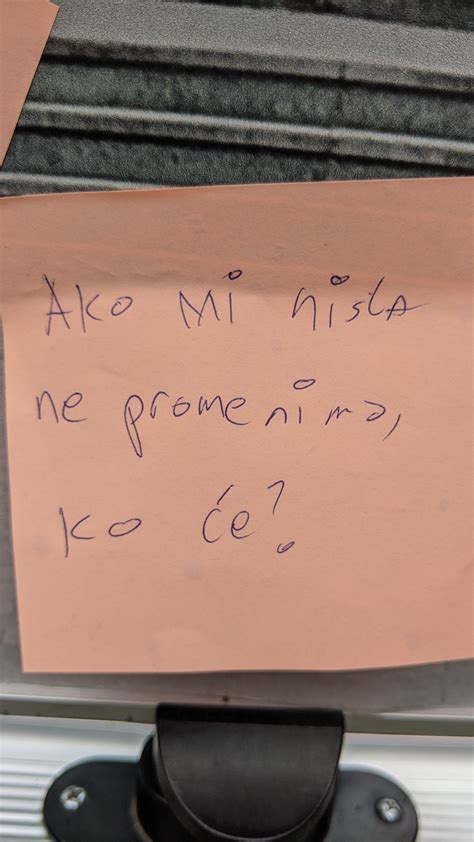 Ako mi ništa
ne promenimo,
ko će?